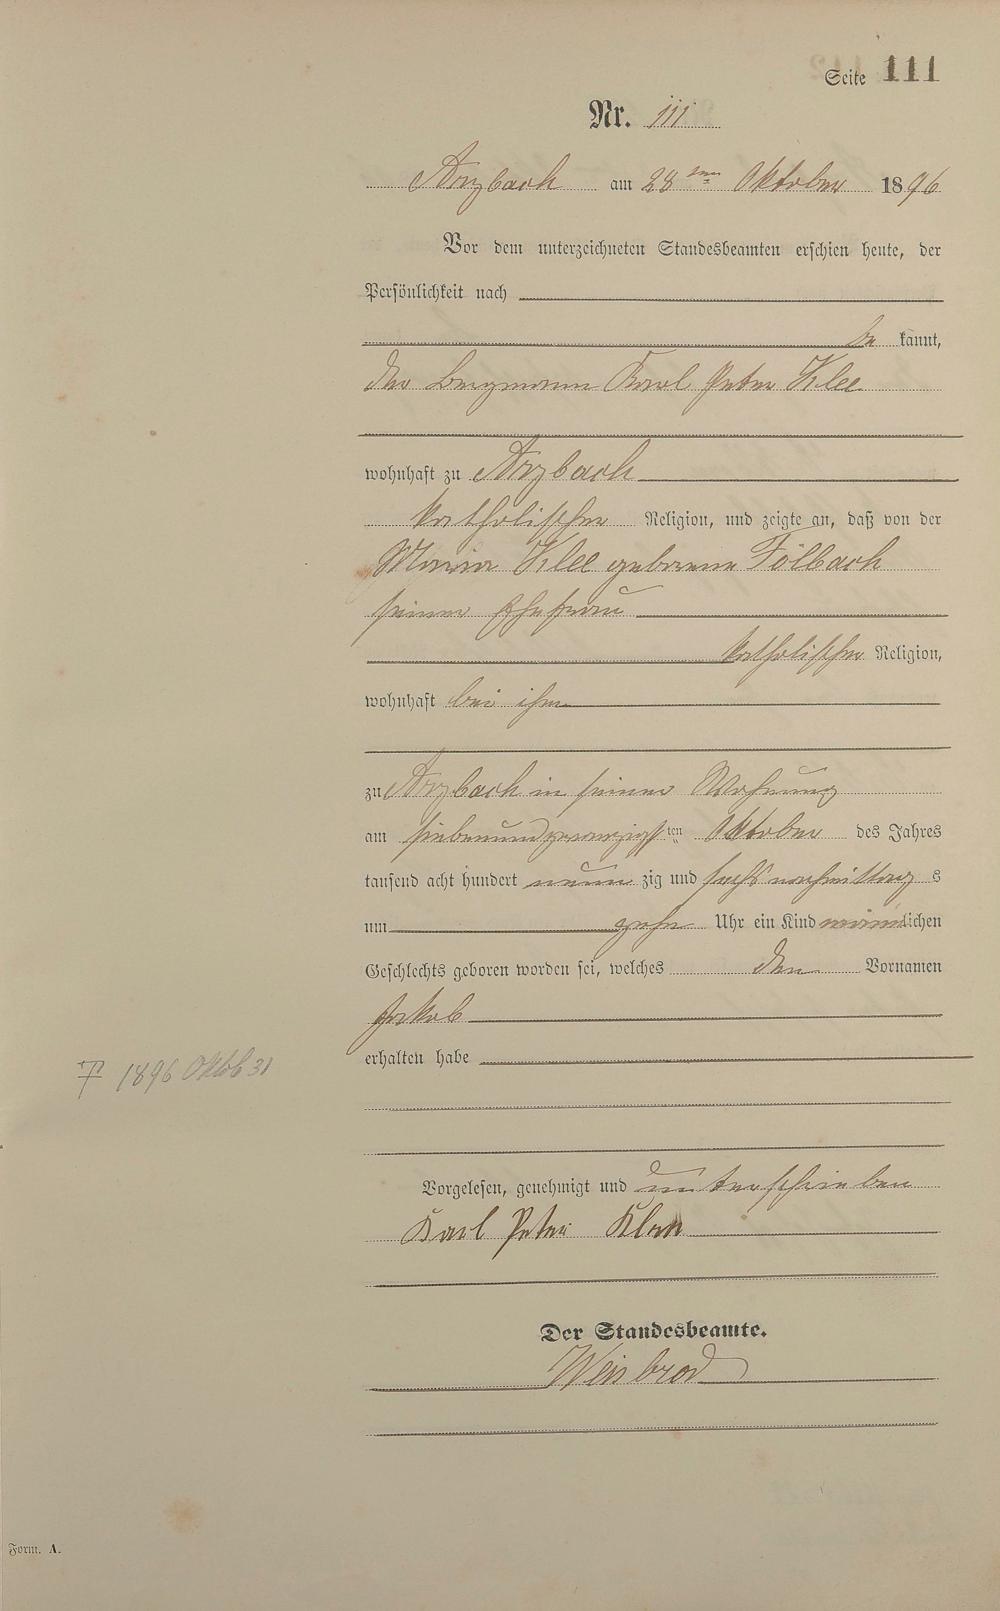 Seite 111
Nr. 111
Arzbach am 28ten Oktober 1896
Vor dem unterzeichneten Standesbeamten erschien heute, der
Persönlichkeit nach
be kannt,
der Bergmann Karl Peter Klee
wohnhaft zu Arzbach
katholischer Religion, und zeigte an, daß von der
Maria Klee geborene Fölbach
seiner Ehefrau
katholischer Religion,
wohnhaft bei ihm
zu Arzbach in seiner Wohnung
am siebenundzwanzigsten Oktober des Jahres
tausend acht hundert neun zig und sechs nachmittag s
um zehn Uhr ein Kind männlichen
Geschlechts geboren worden sei, welches den Vornamen
Jakob
erhalten habe
† 1896 Oktob 31
Vorgelesen, genehmigt und unterschrieben
Karl Peter Klee
Der Standesbeamte.
Weisbrod
Form. A.